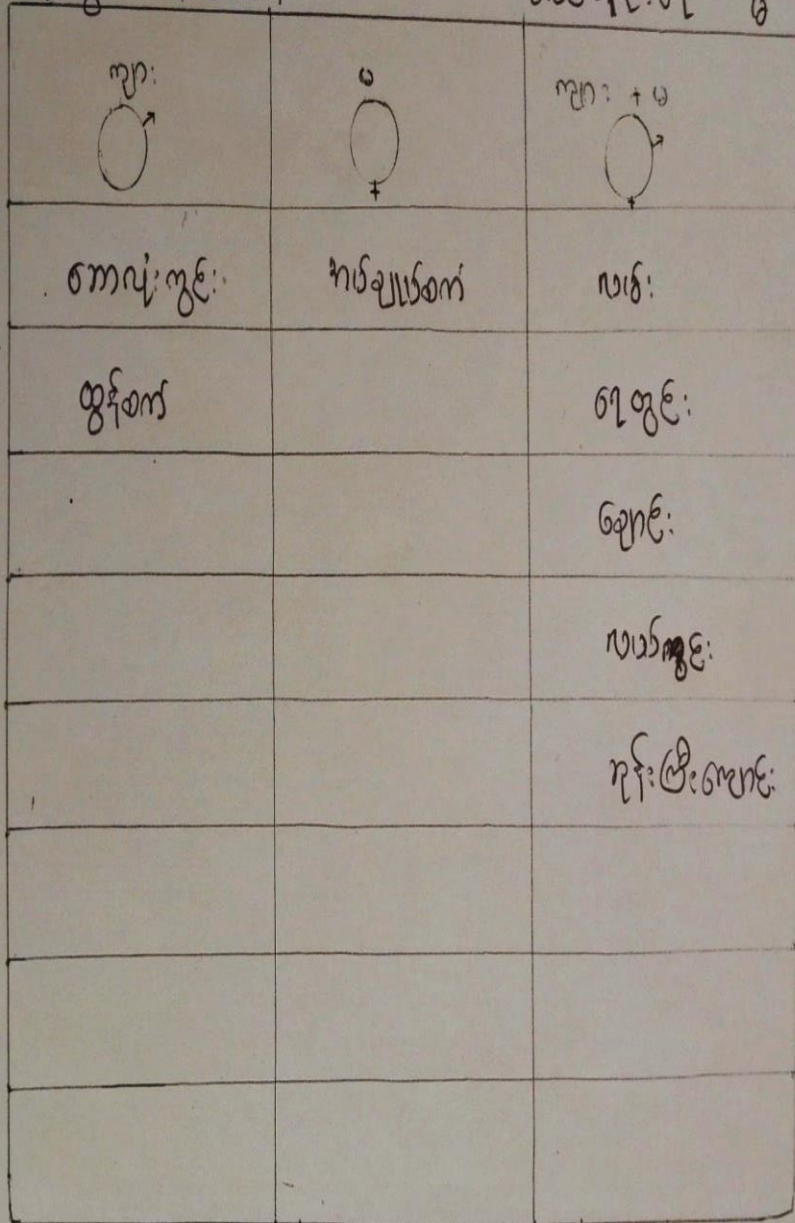 ကျား မ ကျား + မ
ဘောလုံးကွင်း အပ်ချုပ်စက် လမ်း
ထွန်စက် ရေတွင်း
ချောင်း
လယ်ကွင်း
ဘုန်းကြီးကျောင်း